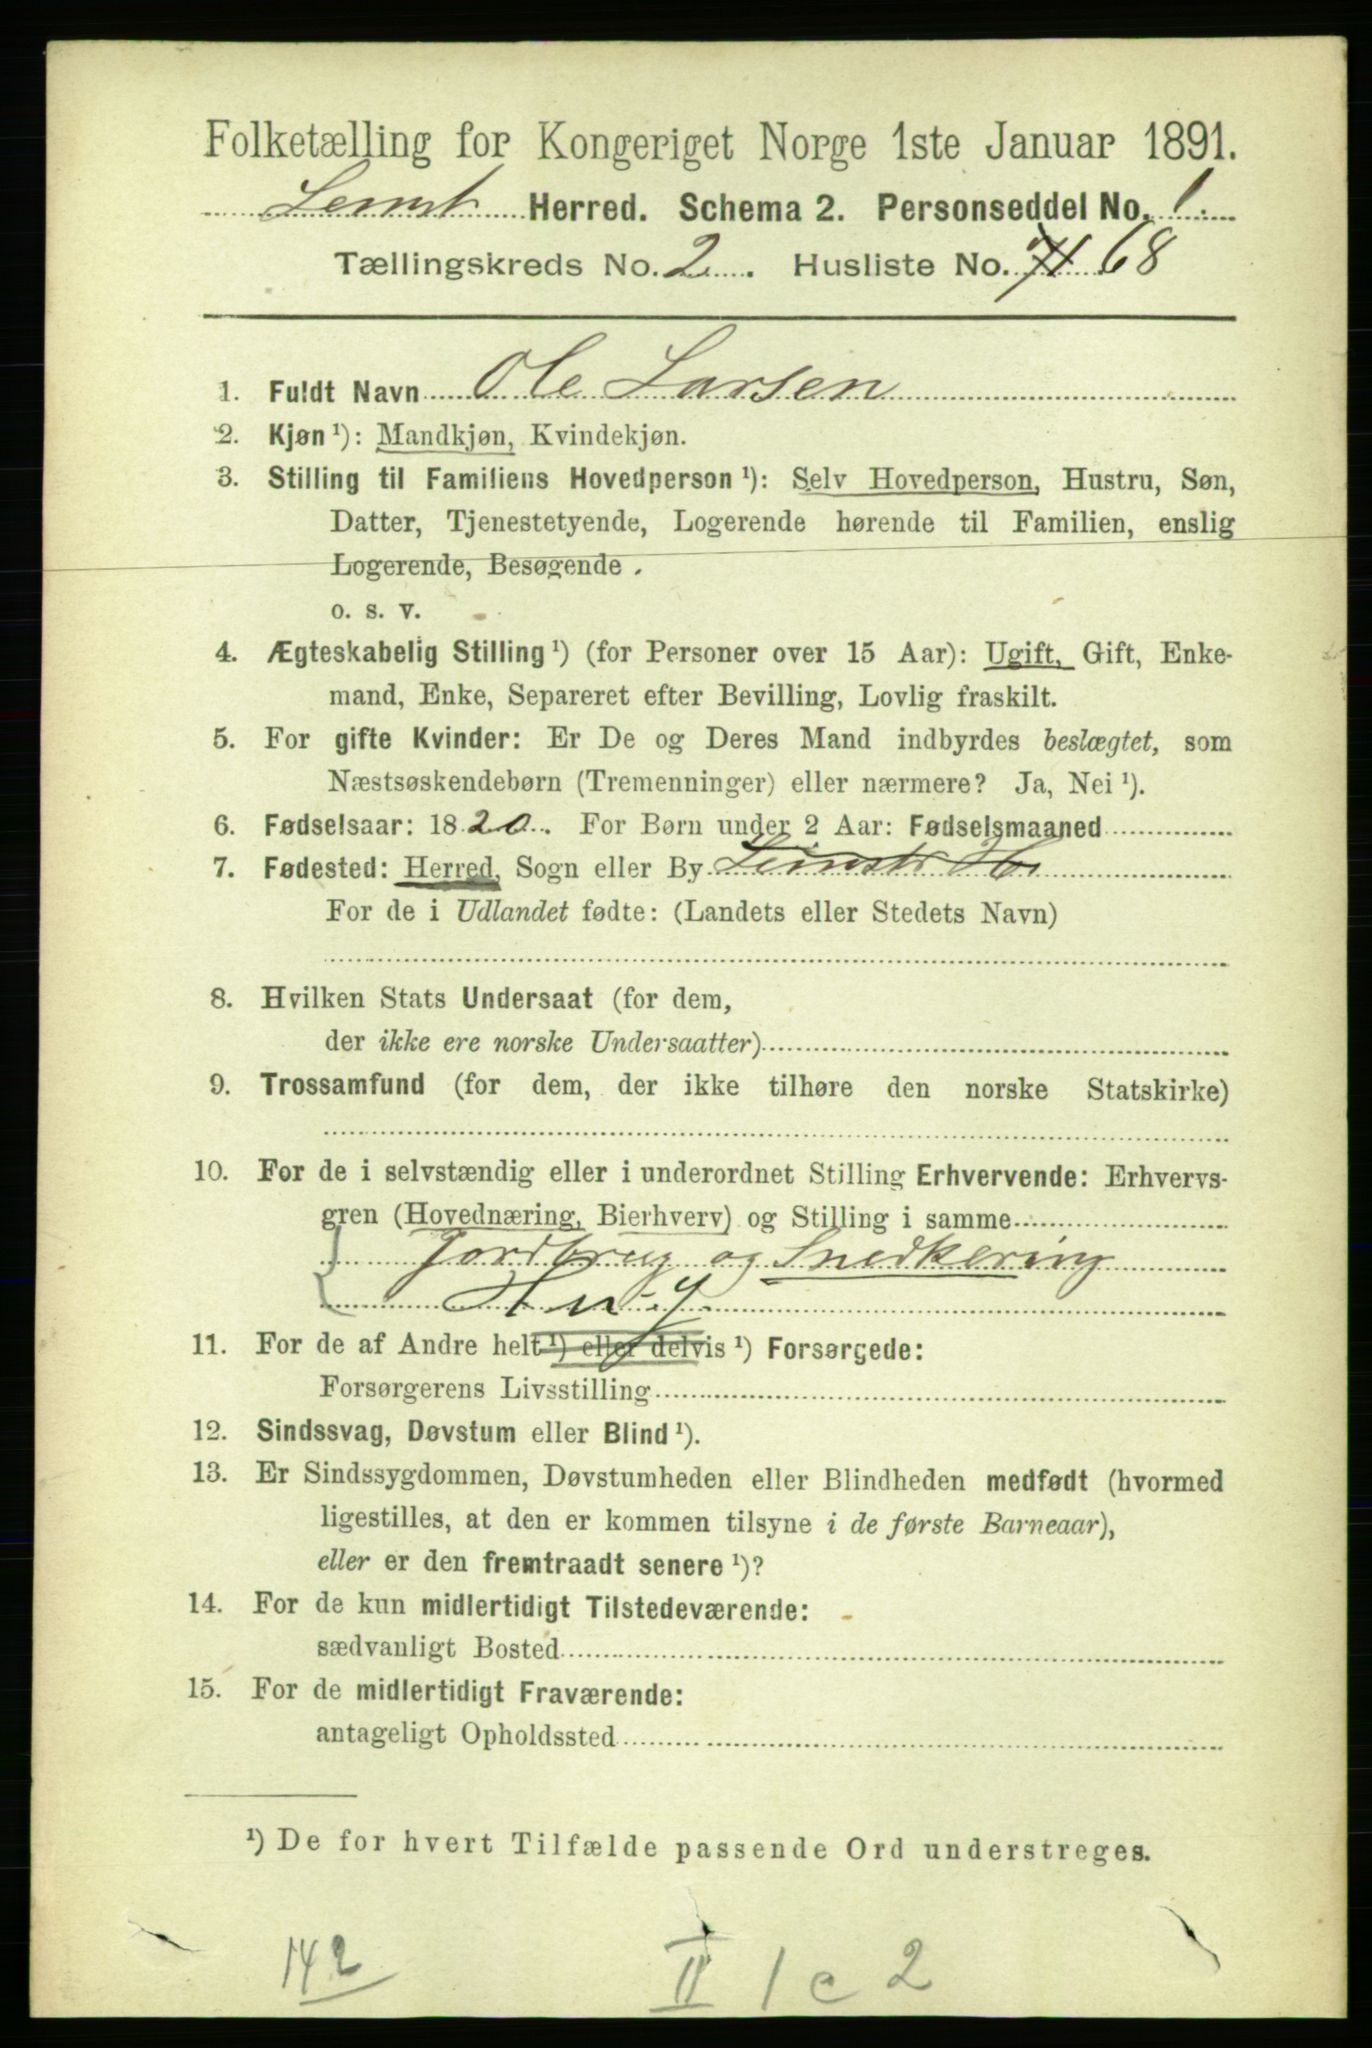 Folketælling for Kongeriget Norge 1ste Januar 1891.
Herred. Schema 2. Personseddel No. 1.
Tællingskreds No. 2. Husliste No. 71 68
1. Fuldt Navn Ole Larsen
2. Kjøn ¹): Mandkjøn, Kvindekjøn.
3. Stilling til Familiens Hovedperson ¹): Selv Hovedperson, Hustru, Søn,
Datter, Tjenestetyende, Logerende hørende til Familien, enslig
Logerende, Besøgende .
o. s. v.
4. Ægteskabelig Stilling ¹) (for Personer over 15 Aar): Ugift, Gift, Enke-
mand, Enke, Separeret efter Bevilling, Lovlig fraskilt.
5. For gifte Kvinder: Er De og Deres Mand indbyrdes beslægtet, som
Næstsøskendebørn (Tremenninger) eller nærmere? Ja, Nei ¹).
6. Fødselsaar: 1820. For Børn under 2 Aar: Fødselsmaaned
7. Fødested: Herred, Sogn eller By
For de i Udlandet fødte: (Landets eller Stedets Navn)
8. Hvilken Stats Undersaat (for dem,
der ikke ere norske Undersaatter)
9. Trossamfund (for dem, der ikke tilhøre den norske Statskirke)
10. For de i selvstændig eller i underordnet Stilling Erhvervende: Erhvervs-
gren (Hovednæring, Bierhverv) og Stilling i samme
Jordbrug og Snedkering
11. For de af Andre helt ¹) eller delvis ¹) Forsørgede:
Forsørgerens Livsstilling
12. Sindssvag, Døvstum eller Blind ¹).
13. Er Sindssygdommen, Døvstumheden eller Blindheden medfødt (hvormed
ligestilles, at den er kommen tilsyne i de første Barneaar),
eller er den fremtraadt senere ¹)?
14. For de kun midlertidigt Tilstedeværende:
sædvanligt Bosted
15. For de midlertidigt Fraværende:
antageligt Opholdssted
¹) De for hvert Tilfælde passende Ord understreges.
142 II 1 c 2